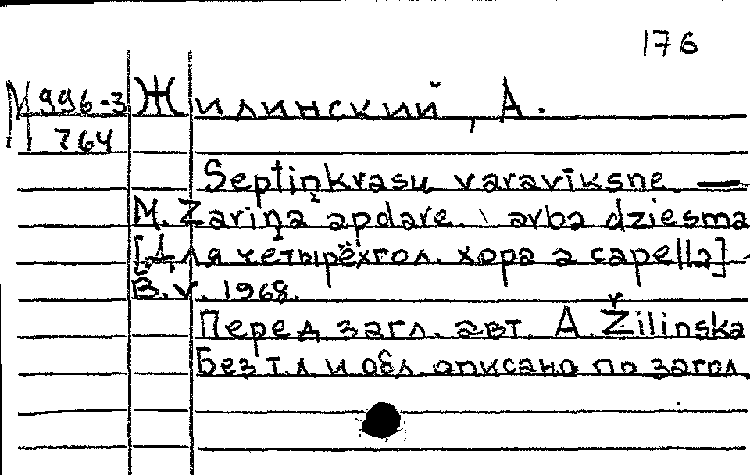 176
М 996-3 Жилинский, А.
764
Septiņkrasu varavīksne. —
M. Zariņa apdare. darba dziesma
[Для четырёхгол. хора a capella]
B.v. 1968.
Перед загл. авт. A. Žilinska
Без т.л и обл. описано по загол.